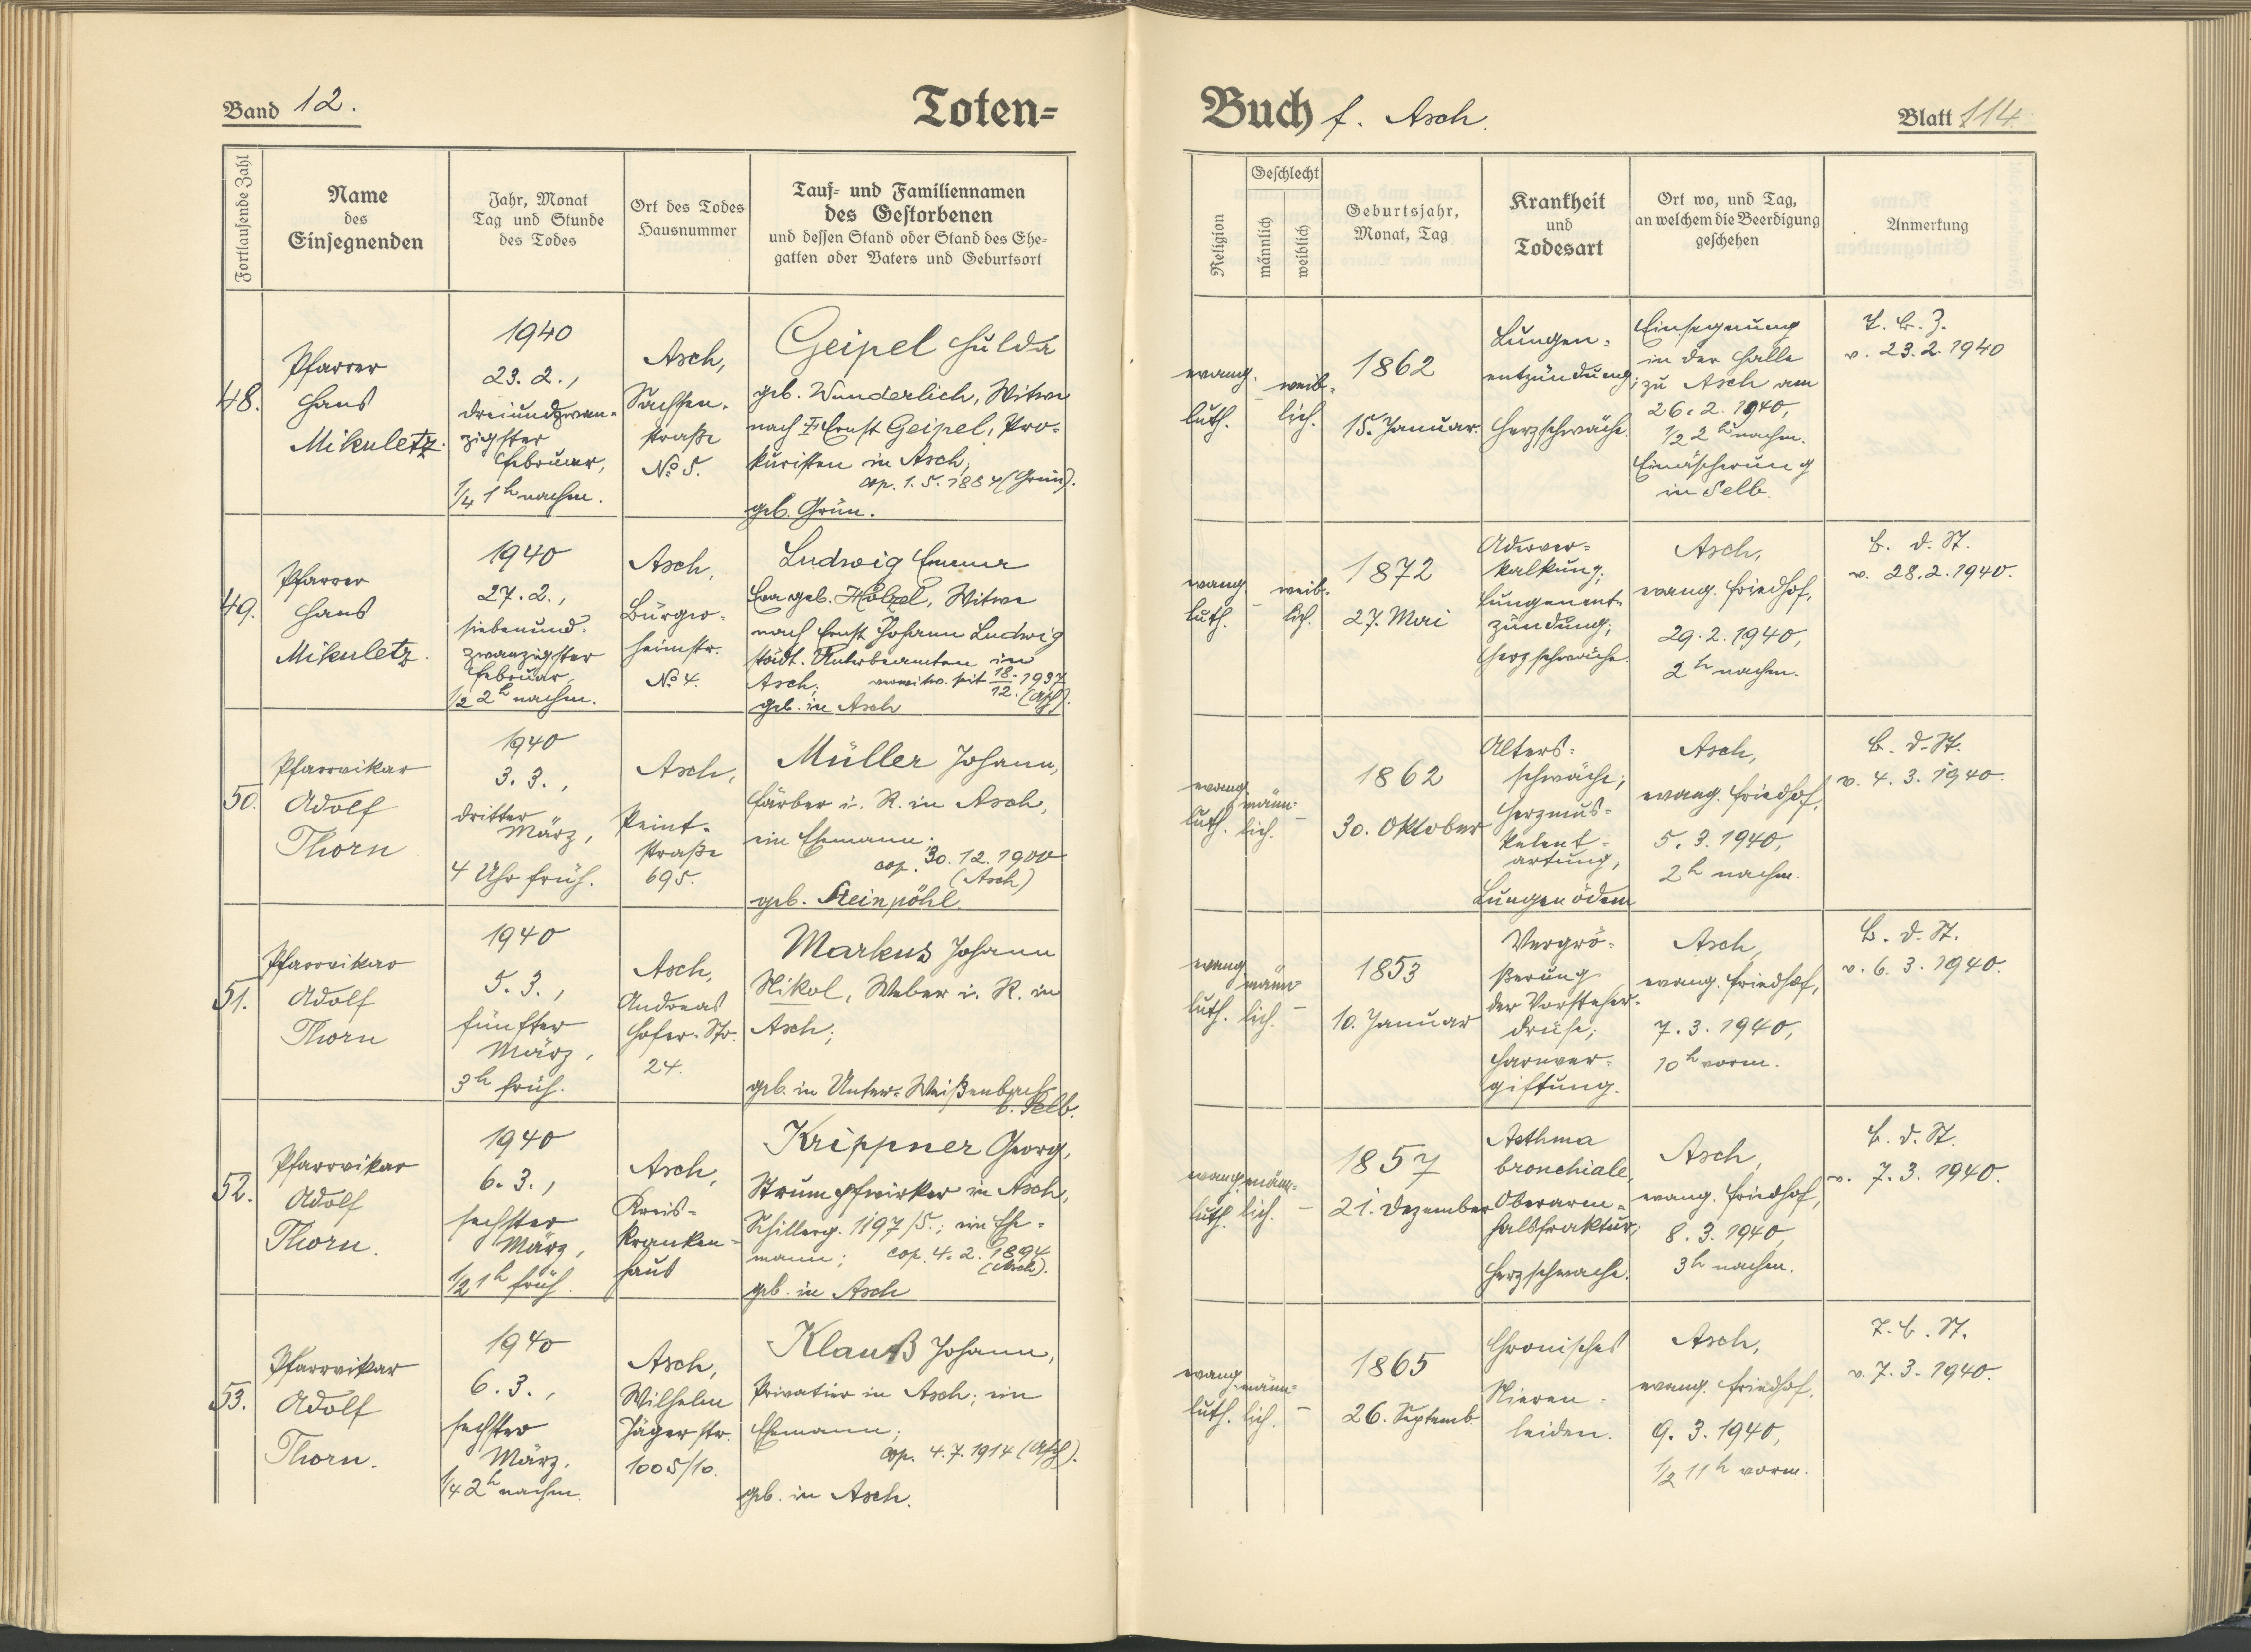 Band 12.
Toten=
Fortlaufende Zahl
Name
des
Einsegnenden
Jahr, Monat
Tag und Stunde
des Todes
Ort des Todes
Hausnummer
Tauf= und Familiennamen
des Gestorbenen
und dessen Stand oder Stand des Ehe=
gatten oder Vaters und Geburtsort
48.
Pfarrer
Hans
Mikuletz.
1940
23. 2.,
dreiundzwan=
zigster
Februar,
1/4 1 h nachm.
Asch,
Sachsen=
straße
No 5.
Geipel Hulda
geb. Wunderlich, Witwe
nach Ernst Geipel, Pro=
kuristen in Asch,
cop. 1. 5. 1884 (Grün).
geb. Grün.
49.
Pfarrer
Hans
Mikuletz.
1940
27. 2.,
siebenund=
zwanzigster
Februar,
1/2 2 h nachm.
Asch,
Bürger=
heimstr.
No 4.
Ludwig Emma
Eva geb. Hölzel, Witwe
nach Ernst Johann Ludwig
städt. Unterbeamten in
Asch; verwitw. seit 18. 12. 1937 (Asch).
geb. in Asch
50.
Pfarrvikar
Adolf
Thorn
1940
3. 3.,
dritter
März,
4 Uhr früh.
Asch,
Peint=
straße
695.
Müller Johann,
Färber i. R. in Asch,
ein Ehemann.
cop. 30. 12. 1900
(Asch)
geb. Steinpöhl.
51.
Pfarrvikar
Adolf
Thorn
1940
5. 3.,
fünfter
März,
3 h früh.
Asch,
Andreas
Hofer-Str.
24.
Markus Johann
Nikol, Weber i. R. in
Asch;
geb. in Unter-Weißenbach
b. Selb.
52.
Pfarrvikar
Adolf
Thorn.
1940
6. 3.,
sechster
März,
1/2 1 h früh.
Asch,
Kreis=
kranken=
haus
Krippner Georg,
Strumpfwirker in Asch,
Schillerg. 1197/5.; ein Ehe=
mann; cop. 4. 2. 1894
(Asch).
geb. in Asch
53.
Pfarrvikar
Adolf
Thorn.
1940
6. 3.,
sechster
März,
1/4 2 h nachm.
Asch,
Wilhelm
Jägerstr.
1005/10.
Klauß Johann,
Privatier in Asch; ein
Ehemann;
cop. 4. 7. 1914 (Asch).
geb. in Asch.
Buch f. Asch.
Blatt 114.
Religion
Geschlecht
männlich
weiblich
Geburtsjahr,
Monat, Tag
Krankheit
und
Todesart
Ort wo, und Tag,
an welchem die Beerdigung
geschehen
Anmerkung
evang.
luth.
–
weib=
lich.
1862
15. Januar.
Lungen=
entzündung;
Herzschwäche.
Einsegnung
in der Halle
zu Asch am
26. 2. 1940,
1/2 2 h nachm.
Einäscherung
in Selb.
v. 23. 2. 1940
evang.
luth.
–
weib=
lich.
1872
27. Mai
Aderver=
kalkung;
Lungenent=
zündung;
Herzschwäche.
Asch,
evang. Friedhof,
29. 2. 1940,
2 h nachm.
B. d. St.
v. 28. 2. 1940.
evang.
luth.
männ=
lich.
–
1862
30. Oktober
Alters=
schwäche;
Herzmus=
kelent=
artung;
Lungenödem
Asch,
evang. Friedhof,
5. 3. 1940,
2 h nachm.
B. d. St.
v. 4. 3. 1940.
evang.
luth.
männ=
lich.
–
1853
10. Januar
Vergrö=
ßerung
der Vorsteher=
drüse;
Harnver=
giftung.
Asch,
evang. Friedhof,
7. 3. 1940,
10 h vorm.
B. d. St.
v. 6. 3. 1940.
evang.
luth.
männ=
lich.
–
1857
21. Dezember
Asthma
bronchiale,
Oberarm=
halsfraktur;
Herzschwäche.
Asch,
evang. Friedhof,
8. 3. 1940,
3 h nachm.
B. d. St.
v. 7. 3. 1940.
evang.
luth.
männ=
lich.
–
1865
26. Septemb.
Chronisches
Nieren=
leiden.
Asch,
evang. Friedhof,
9. 3. 1940,
1/2 11 h vorm.
v. 7. 3. 1940.